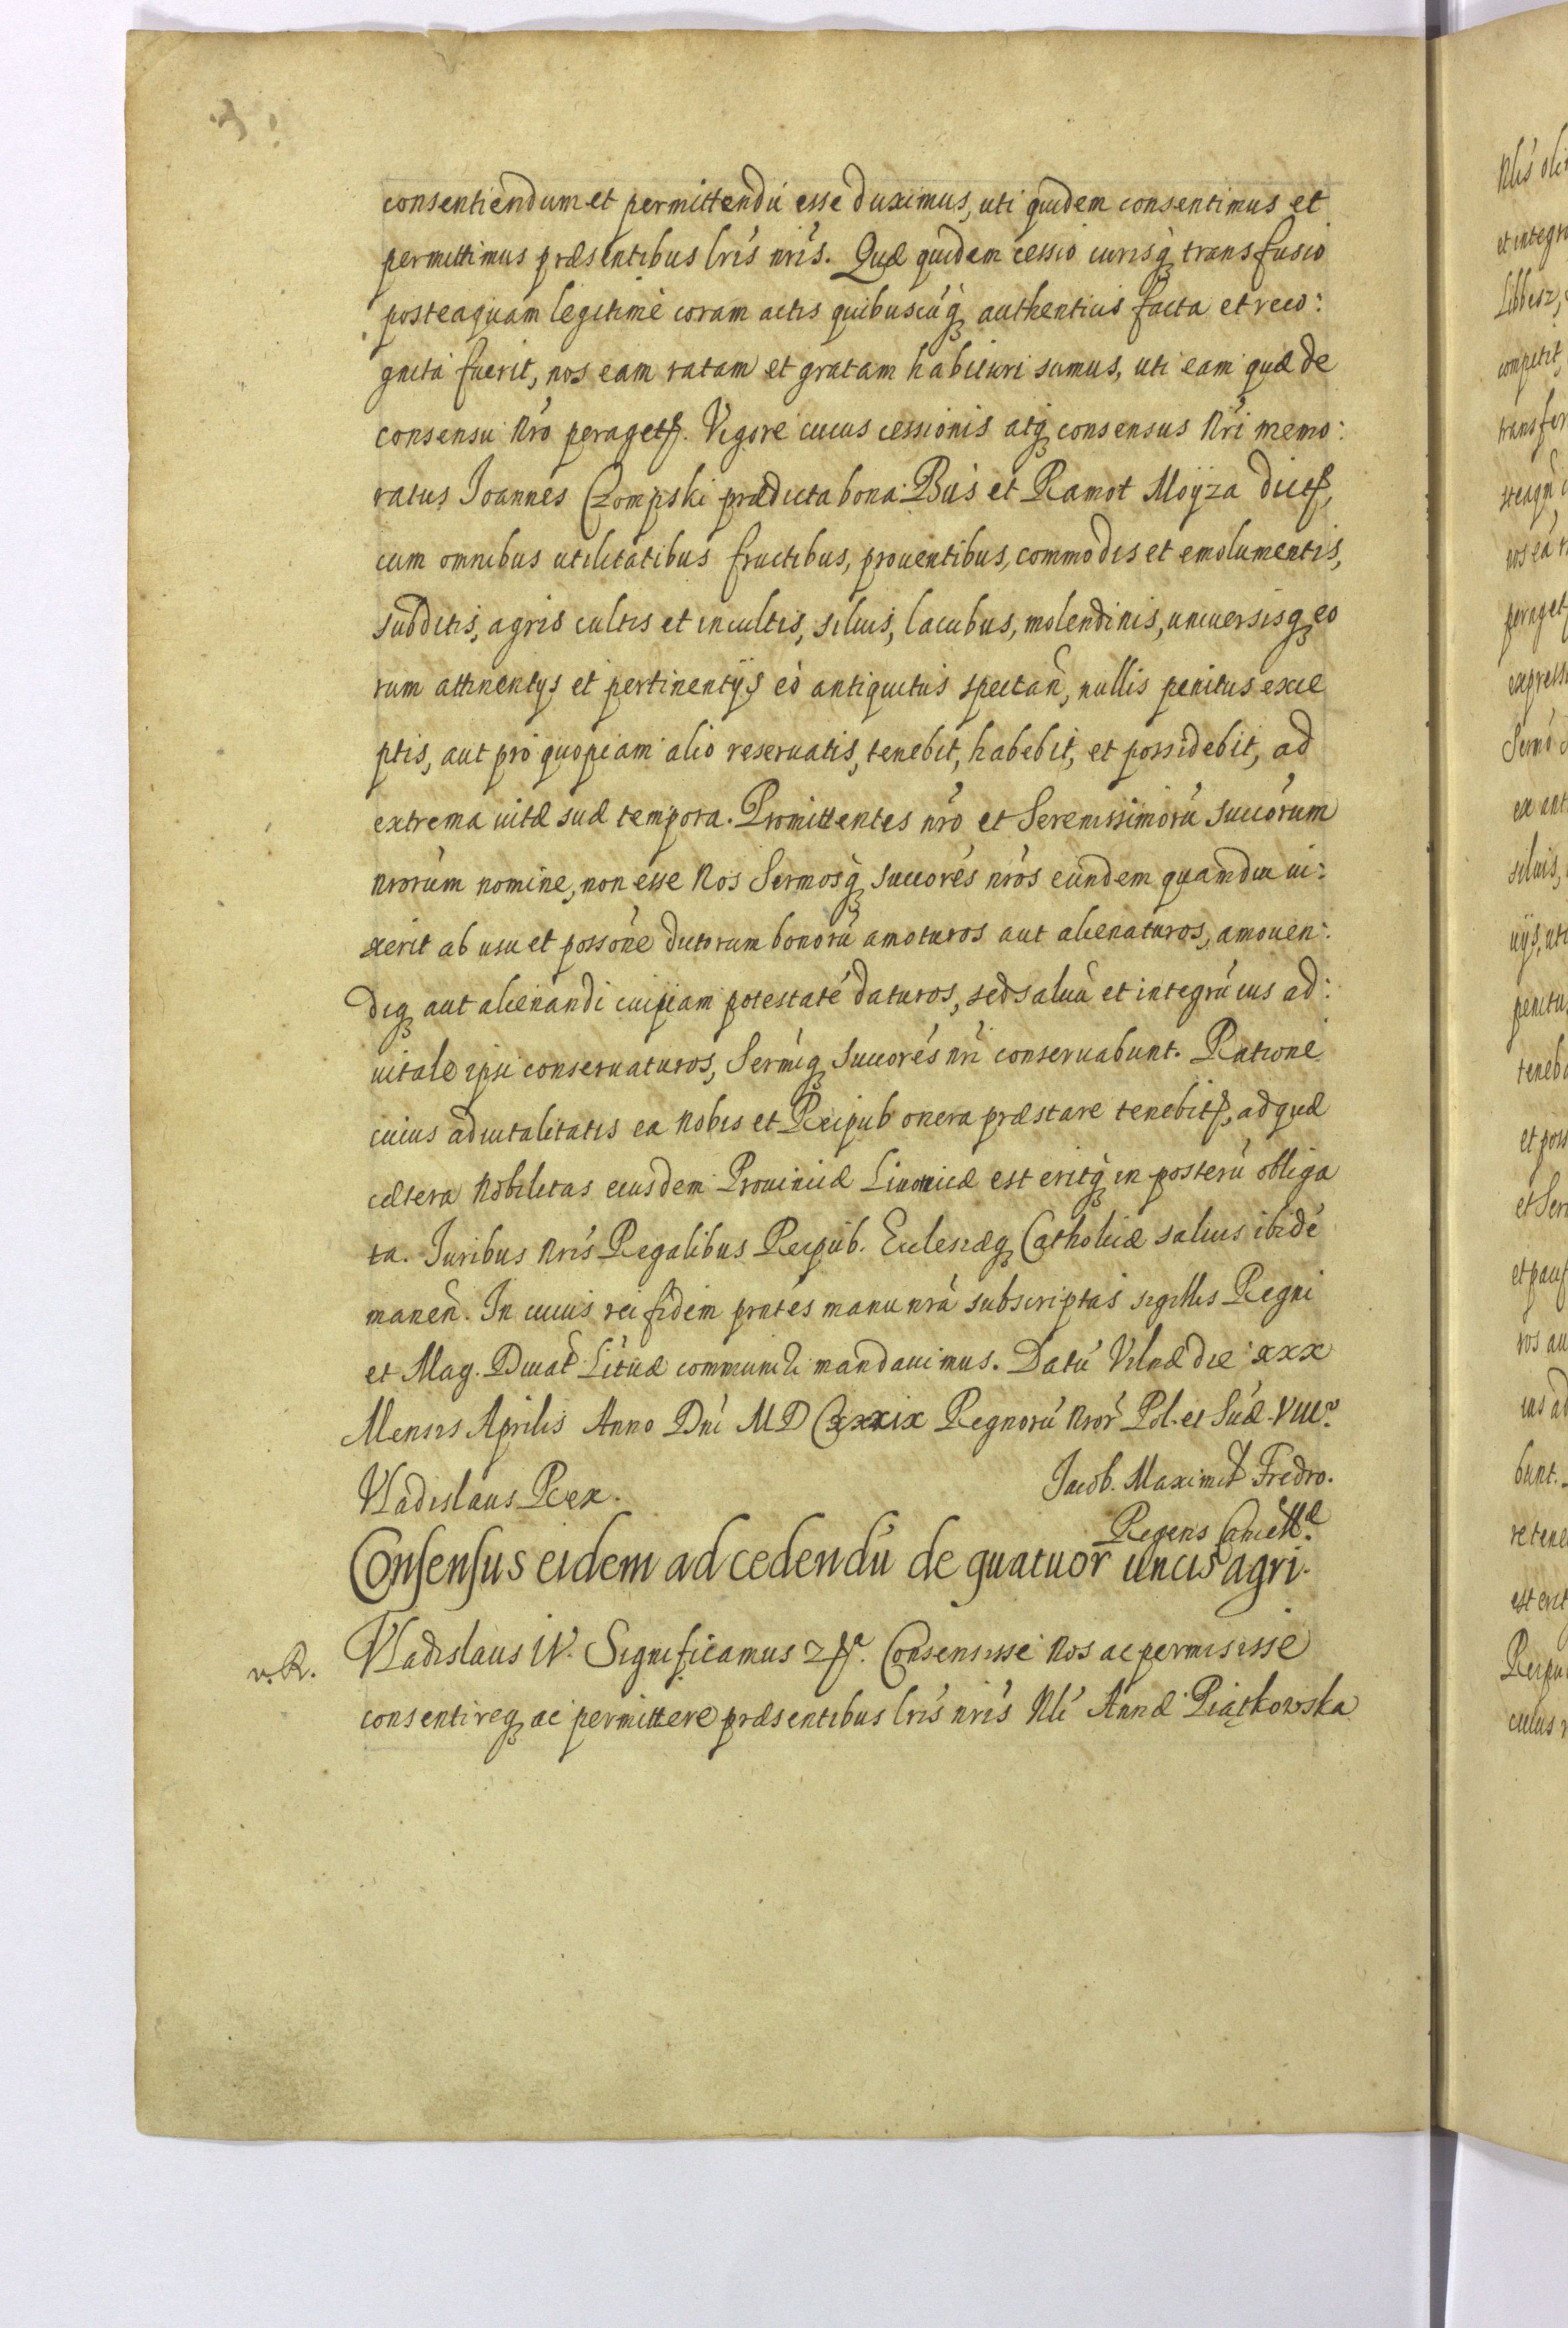 consentiendum et permittendú esse duximus, uti quidem consentimus et
permittimus præsentibus lrís nrís. Quæ quidem cessio iurisq́ transfusio
posteaquam legitimè coram actis quibuscúq́ authenticis facta et reco:
gnita fuerit, nos eam ratam et gratam habituri sumus, uti eam quæ de
consensu Nró peragetr. Vigore cuius cessionis atq́ consensus Nrí memo:
ratus Joannes Czompski prædicta bona Bús et Ramot Moÿza dictr,
cum omnibus utilitatibus fructibus, prouentibus, commodis et emolumentis,
subditis, agris cultis et incultis, siluis, lacubus, molendinis, uniuersisq́ eo
rum attinentys et pertinentÿs eò antiquitus spectañ, nullis penitus exce
ptis, aut pro quopiam alio reseruatis, tenebit, habebit, et possidebit, ad
extrema uitæ suæ tempora. Promittentes nró et Serenissimorú succórum
nrorúm nomine, non esse Nos Sermosq́ succorés nrós eúndem quamdiu ui:
xerit ab usu et possóne dictorum bonorú amoturos aut alienaturos, amouen:
diq́ aut alienandi cuipiam potestaté daturos, sed saluú et integrú ius ad:
uitale ipsi conseruaturos, Sermíq́ Succorés nrí conseruabunt. Ratione
cuius aduitalitatis ea Nobis et Reipub onera præstare tenebitr, ad quæ
cætera Nobilitas eiusdem Prouinciæ Liuoniæ est eritq́ in posterú obliga
ta. Juribus Nrís Regalibus Reipub. Ecclesiæq́ Catholicæ saluis ibidé
maneñ. In cuius rei fidem prntés manu nrá subscriptas sigillis Regni
et Mag. Ducat Lítuæ communiri mandauimus. Datú Vilnæ die XXX
Mensis Aprilis Anno Dní MDCXXXIX Regnorú Nror Pol. et Suæ. VIII.
Vladislaus Rex.
Jacob. Maximil Fredro.
Regens Cancellæ.
Consensus eidem ad cedendú de quatuor uncis agri.
v. R. Vladislaus IV. Significamus etc. Consensisse Nos ac permisisse
consentireq́ ac permittere præsentibus lrís nrís Nlí Annæ Piątkowska
Nlís
et integr
competit,
transfer
nos eá
peraget
Sermó
ex ant
siluis,
penitu
teneb
et poss
et Ser
ros au
ius ad
bunt.
retene
est erit
Reipu
cuius